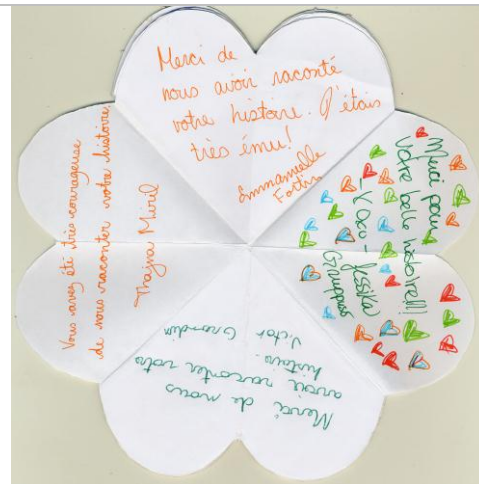 Merci de
nous avoir raconté
votre histoire. J'étais
très ému!
Emmanuelle
Fortin
Merci pour
votre belle histoire!!
XOXO - Jessika
Merci de nous
avoir raconter votre
histoire.
Victor
Vous avez été très courageuse
de nous raconter votre histoire.